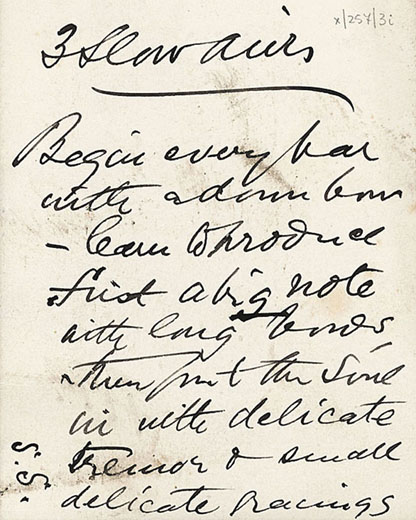 x/257/3i
3 Slow Airs
Begin every bar
with a down bow
- learn to produce
first a big note
with long bows,
- then put the Soul
in with delicate
tremor & small
delicate gracings